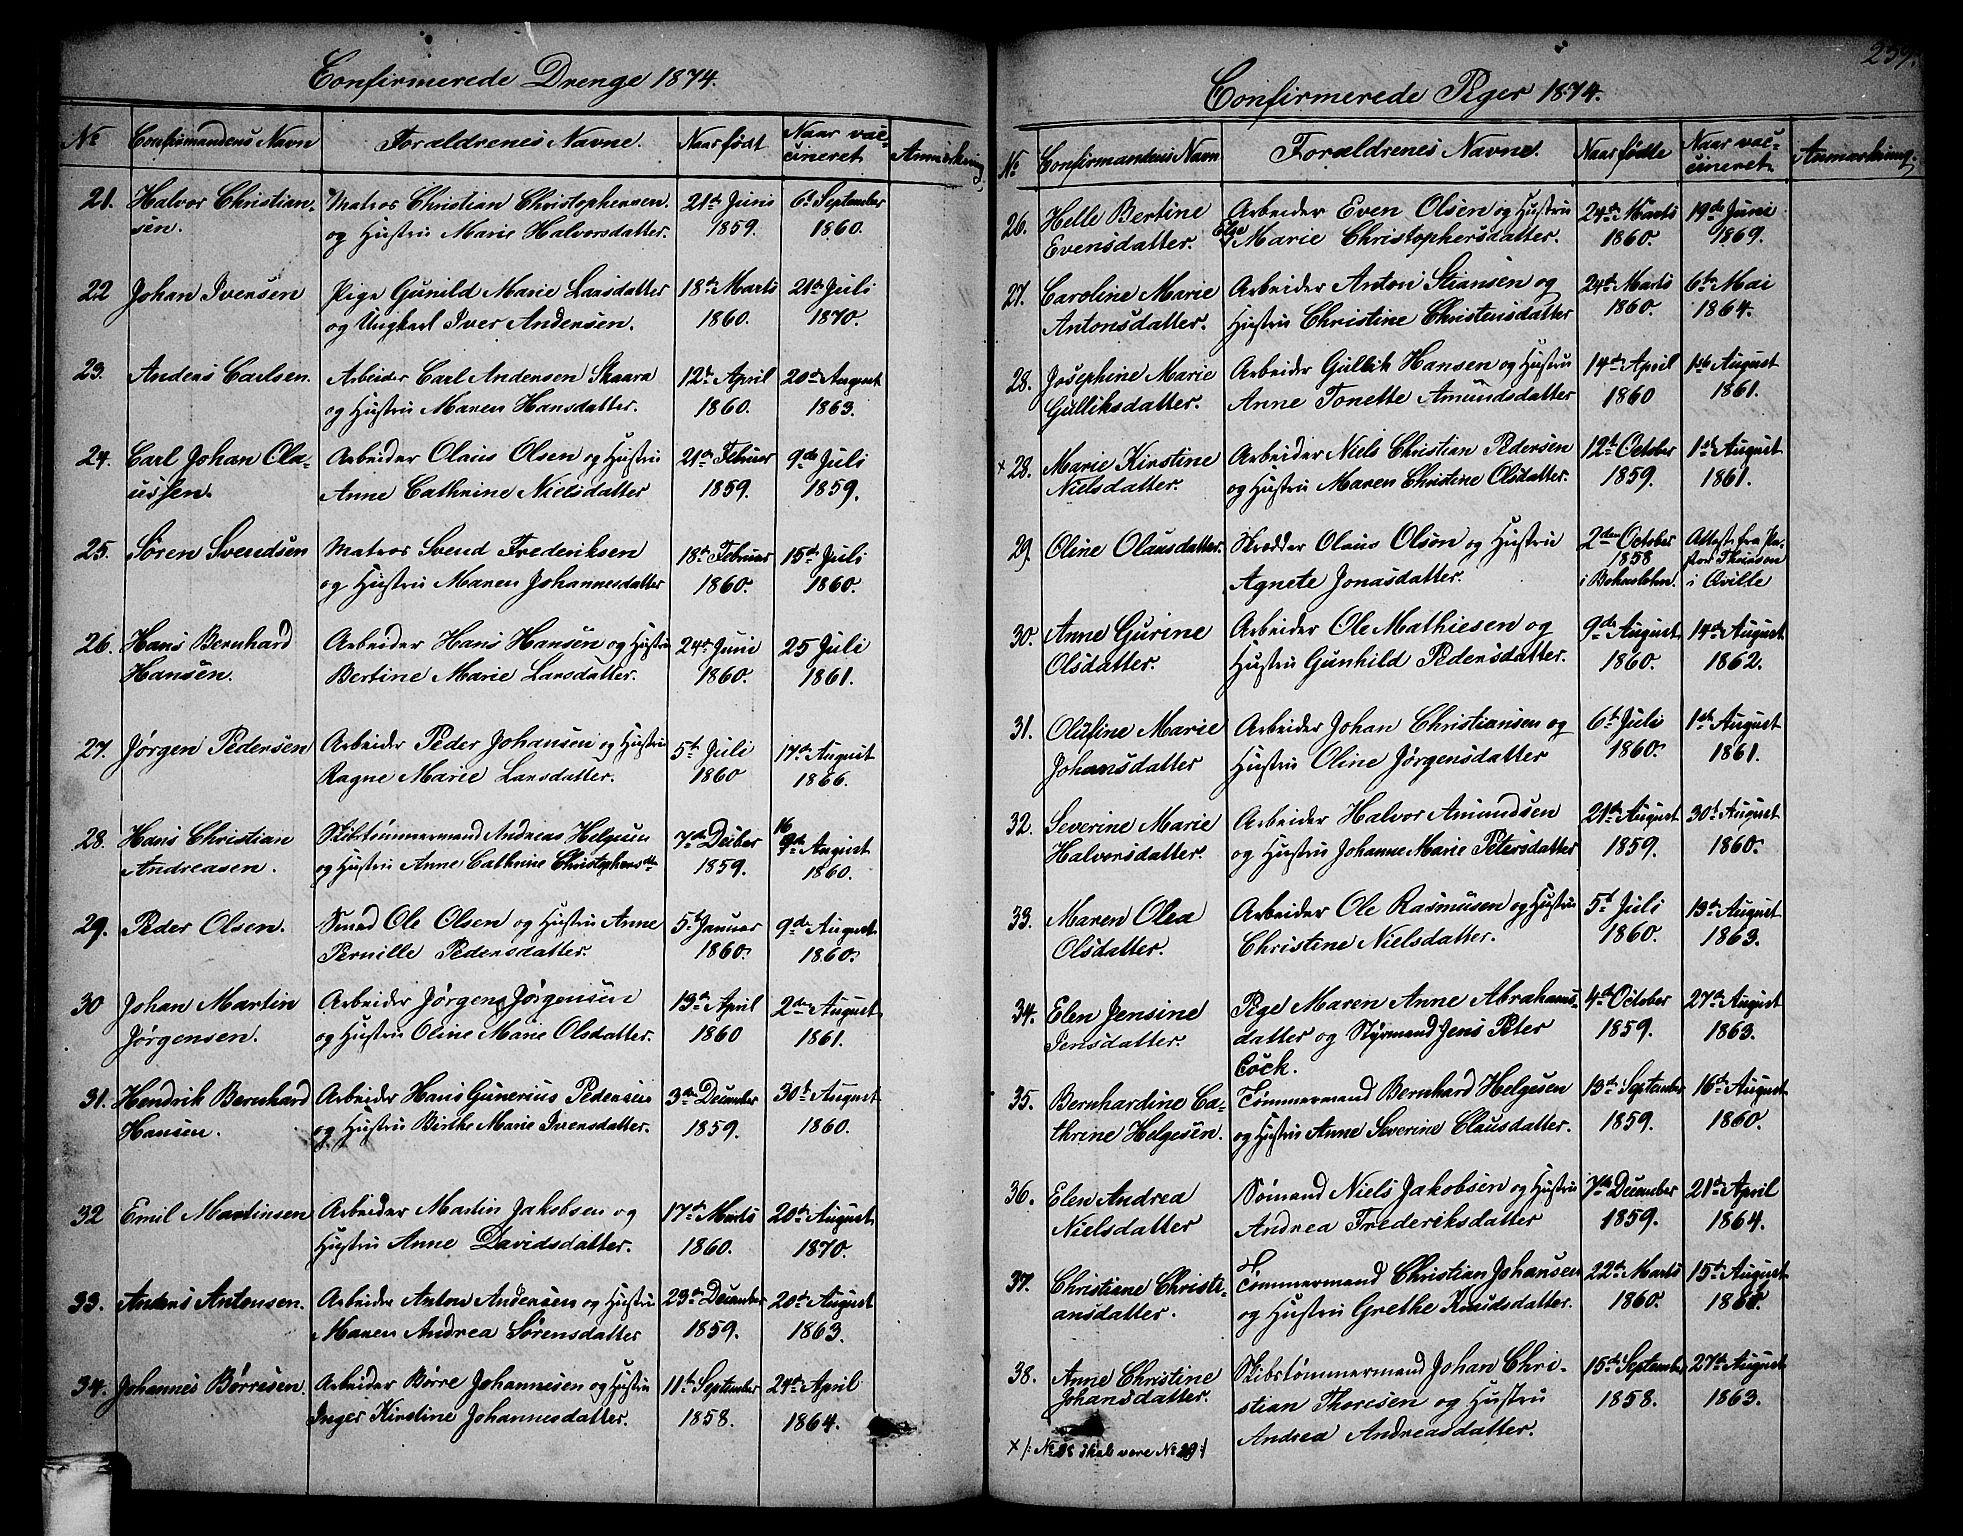 Confirmerede Drenge 1874.
No Confirmandens Navn Forældrenes Navne. Naar født Naar vac-
cineret Anmærkning
21. Halvor Christian- Matros Christian Christophersen 21de Juni 6te September
sen. og Hustru Marie Halvorsdatter. 1859. 1860.
22 Johan Iversen Pige Gunild Marie Larsdatter 18de Marts 21de Juli
og Ungkarl Iver Andersen. 1860. 1870.
23. Anders Carlsen. Arbeider Carl Andersen Skaara 12te April 20de August
og Hustru Maren Hansdatter. 1860. 1863.
24. Carl Johan Ola- Arbeider Olaus Olsen og Hustru 21de Februar 9de Juli
ussen. Anne Cathrine Nielsdatter 1859. 1859.
25. Søren Svendsen Matros Svend Frederiksen 18de Februar 15de Juli
og Hustru Maren Johannesdatter 1860. 1860.
26. Hans Bernhard Arbeider Hans Hansen og Hustru 24de Juni 25 Juli
Hansen. Bertine Marie Larsdatter. 1860. 1861.
27. Jørgen Pedersen Arbeider Peder Johansen og Hustru 5te Juli 17de August
Ragne Marie Larsdatter. 1860 1866.
28. Hans Christian Skibstømmermand Andreas Helgesen 7de Decber 16 August
Andreasen. og Hustru Anne Cathrine Christophersdtr 1859. 1860.
29. Peder Olsen. Smed Ole Olsen og Hustru Anne 5te Januar 9de August
Pernille Pedersdatter. 1860. 1860.
30 Johan Martin Arbeider Jørgen Jørgensen 13de April 2de August
Jørgensen. og Hustru Oline Marie Olsdatter. 1860 1861.
31. Hendrik Bernhard Arbeider Hans Gunerius Pedersen 3de December 30te August
Hansen. og Hustru Birthe Marie Iversdatter. 1859. 1860.
32 Emil Martinsen Arbeider Martin Jakobsen og 17de Marts 20de August
Hustru Anne Davidsdatter. 1860. 1870.
33. Anders Antonsen. Arbeider Anton Andersen og Hustru 23de December 20de August
Maren Andrea Sørensdatter 1859. 1863.
34. Johannes Børresen. Arbeider Børre Johannesen og Hustru 11te September 24de April
Inger Kirstine Johannesdatter. 1858. 1864.
259.
Confirmerede Piger 1874.
No Confirmandens Navn Forældrenes Navne. Naar fødte Naar vac-
cineret Anmærkning.
26. Helle Bertine Arbeider Even Olsen og Hustru 24de Marts 19de Juni
Evensdatter. Else Marie Christophersdatter. 1860. 1869.
27. Caroline Marie Arbeider Anton Stiansen og 24de Marts 6te Mai
Antonsdatter. Hustru Christine Christensdatter 1860. 1864.
28. Josephine Marie Arbeider Gullik Hansen og Hustru 14de April 1ste August
Gulliksdatter. Anne Tonette Amundsdatter 1860 1861.
x 28. Marie Kirstine Arbeider Niels Christian Pedersen 12te October 1ste August
Nielsdatter. og Hustru Maren Christine Olsdatter. 1859. 1861.
29. Oline Olausdatter. Skrædder Olaus Olson og Hustru 2den October Attest fra Pa-
Agnete Jonasdatter. 1858 stor Thuresen
i Bohuslehn. i Qville
30. Anne Gurine Arbeider Ole Mathiesen og 9de August 14de August
Olsdatter. Hustru Gunhild Pedersdatter. 1860. 1862.
31. Olufine Marie Arbeider Johan Christiansen og 6te Juli 1ste August
Johansdatter Hustru Oline Jørgensdatter 1860. 1861.
32. Severine Marie Arbeider Halvor Amundsen 21de August 30te August
Halvorsdatter. og Hustru Johanne Marie Petersdatter 1859. 1860.
33. Maren Olea Arbeider Ole Rasmusen og Hustru 5te Juli 13de August
Olsdatter. Christine Nielsdatter. 1860. 1863.
34. Elen Jensine Pige Maren Anne Abrahams- 4de October 27de August
Jensdatter. datter og Styrmand Jens Peter 1859. 1863.
Cock.
35. Bernhardine Ca- Tømmermand Bernhard Helgesen 13de September 16de August
thrine Helgesen. og Hustru Anne Severine Clausdatter. 1859. 1860.
36. Elen Andrea Sømand Niels Jakobsen og Hustru 7de December 21de April
Nielsdatter Andrea Frederiksdatter 1859. 1864.
37. Christiane Christi- Tømmermand Christian Johansen 22de Marts 15de August
ansdatter. og Hustru Grethe Knudsdatter. 1860.
38. Anne Christine Skibstømmermand Johan Chri- 15de September 27de August
Johansdatter. stian Thoresen og Hustru 1858. 1863.
Andrea Andreasdatter.
x /: No 28 skal være No 29 :/